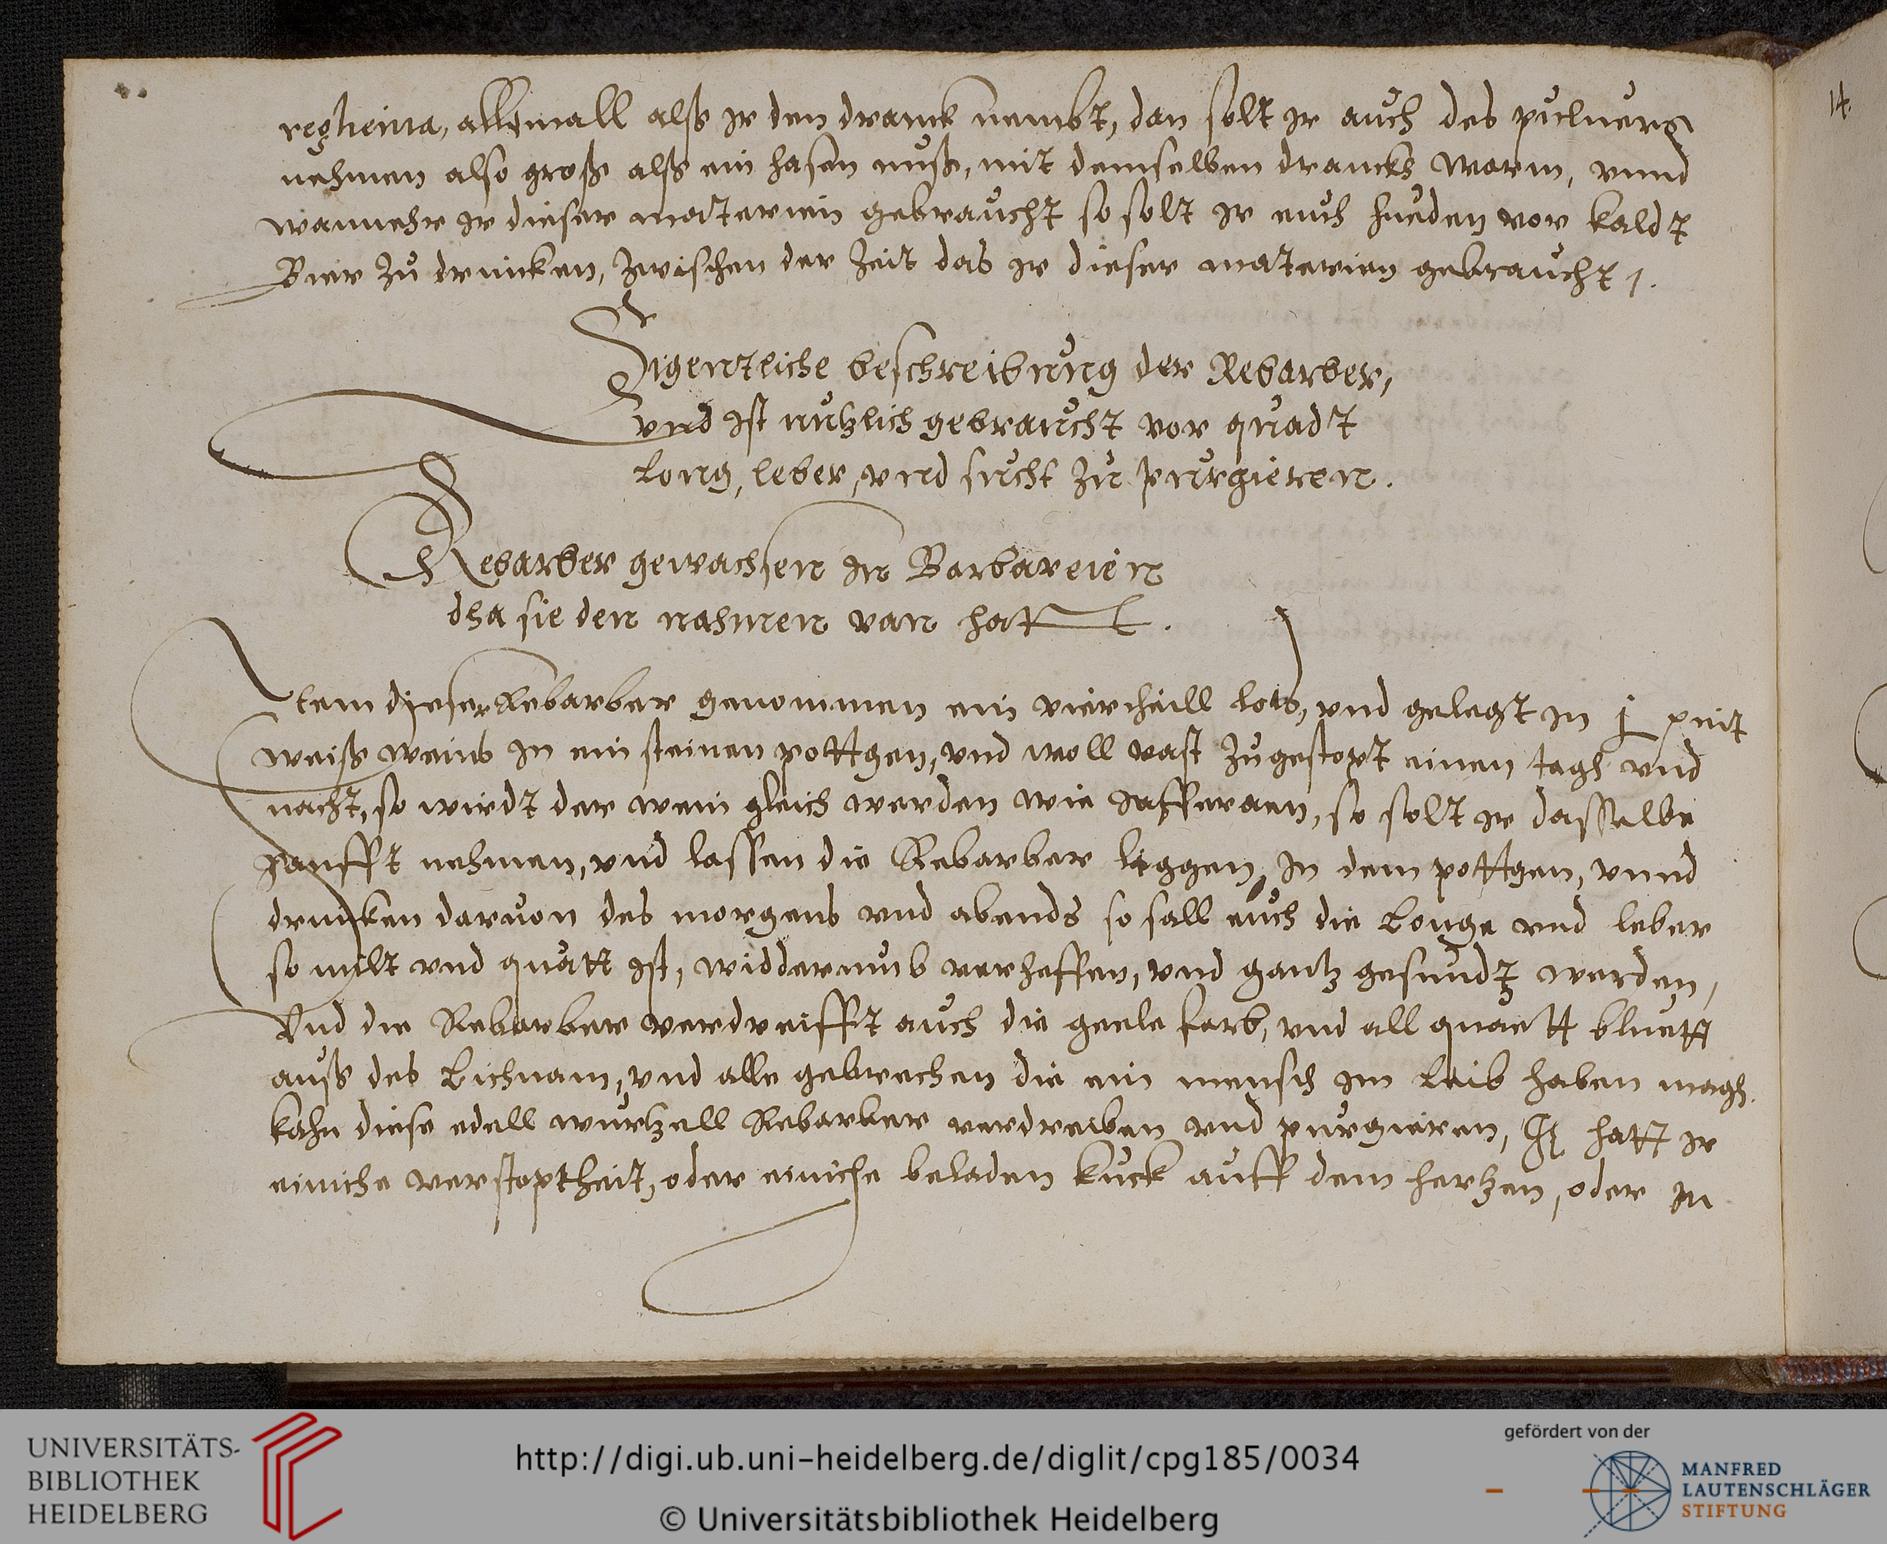 regheina, allemall alß ir den dranck nembt, dan solt ir auch des puluers
nehmen also groß alß ein hasen nuß, mit demselben drancks warm, vnnd
wannehr ir dieser materien gebraucht so solt ir euch hueden vor kaldt
Bier zu drincken, zwischen der zeit das ir dieser materien gebraucht.
Eigentliche beschreibung der Rebarber,
vnd ist nutzlich gebraucht vor quadt
long, leber, vnd sucht zu purgieren.
Rebarber gewachsen in Barbareien
dha sie den nahmen van hatt.
Item dieser Rebarber genommen ein viertheill lots, vnd gelegt in j pint
weiß weins in ein steinen pottgen, vnd woll vast zugestopt einen tagh vnd
nacht, so wirdt der wein gleich werden wie safferaen, so solt ir dasselbe
sanfft nehmen, vnd lassen die Rebarber liggen, in dem pottgen, vnnd
drincken daruon des morgens vnd abends so sall euch die Longe vnd leber
so milt vnd quatt ist, widderumb verheffen, vnd gantz gesundt werden,
Vnd die Rebarber verdreifft auch die geele farb, vnd all quaett bluett
auß des Lichnam, vnd alle gebrechen die ein mensch im leib haben magh.
kahn diese edell wurtzell Rebarber verdreiben vnd purgieren, hatt ir
einiche verstoptheit, oder einiche beladen kuck auff dem hertzen, oder in
14.
UNIVERSITÄTS-
BIBLIOTHEK
HEIDELBERG
http://digi.ub.uni-heidelberg.de/diglit/cpg185/0034
© Universitätsbibliothek Heidelberg
gefördert von der
MANFRED
LAUTENSCHLÄGER
STIFTUNG